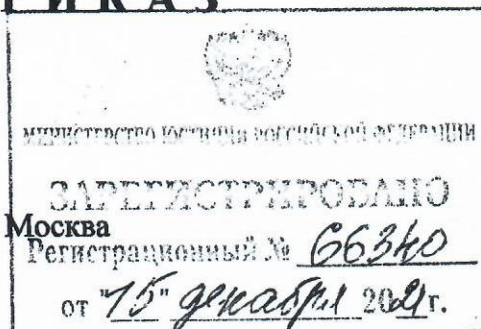 ПРИКАЗ
МИНИСТЕРСТВО ЮСТИЦИИ РОССИЙСКОЙ ФЕДЕРАЦИИ
ЗАРЕГИСТРИРОВАНО
Москва
Регистрационный № 66340
от "15" декабря 2021 г.